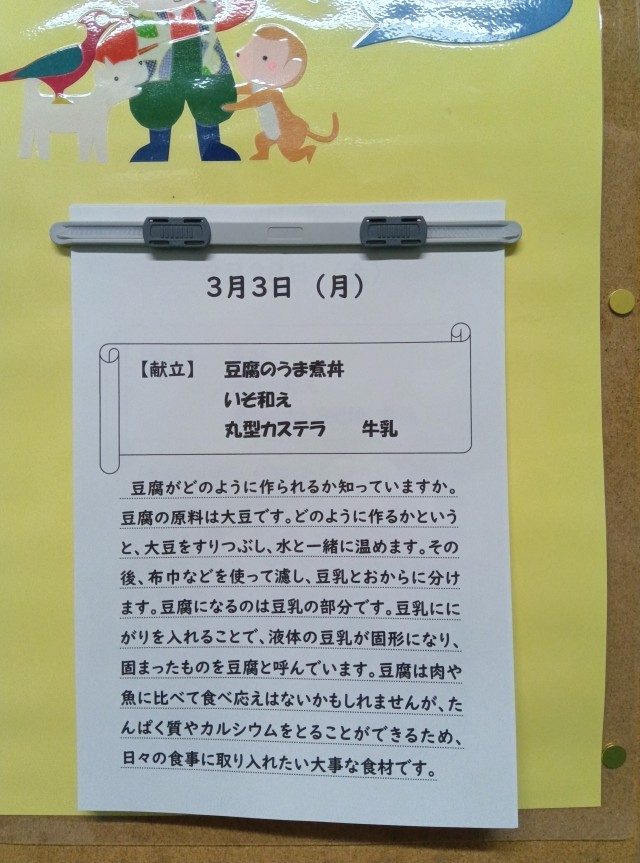 ３月３日（月）
【献立】 豆腐のうま煮丼
いそ和え
丸型カステラ 牛乳
豆腐がどのように作られるか知っていますか。
豆腐の原料は大豆です。どのように作るかという
と、大豆をすりつぶし、水と一緒に温めます。その
後、布巾などを使って濾し、豆乳とおからに分け
ます。豆腐になるのは豆乳の部分です。豆乳ににが
がりを入れることで、液体の豆乳が固形になり、
固まったものを豆腐と呼んでいます。豆腐は肉や
魚に比べて食べ応えはないかもしれませんが、た
んぱく質やカルシウムをとることができるため、
日々の食事に取り入れたい大事な食材です。